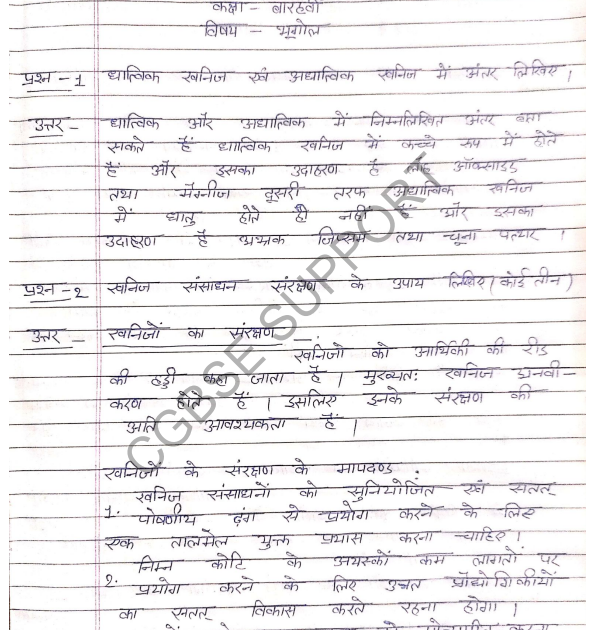 कक्षा - बारहवी
विषय - भूगोल
प्रश्न - 1 धात्विक खनिज एवं अधात्विक खनिज में अंतर लिखिए।
उत्तर - धात्विक और अधात्विक में निम्नलिखित अंतर बता
सकते हैं धात्विक खनिज में कच्चे रूप में होते
हैं और इसका उदाहरण है लौह ऑक्साइड
तथा मैग्नीज दूसरी तरफ अधात्विक खनिज
में धातु होते ही नहीं हैं और इसका
उदाहरण है अभ्रक जिप्सम तथा चूना पत्थर।
प्रश्न - 2 खनिज संसाधन संरक्षण के उपाय लिखिए (कोई तीन)
उत्तर - खनिजों का संरक्षण -
खनिजो को आर्थिकी की रीड
की हड्डी कहा जाता है। मुख्यतः खनिज अनवी-
करण होते हैं। इसलिए इनके संरक्षण की
अति आवश्यकता हैं।
खनिजों के संरक्षण के मापदण्ड :
खनिज संसाधनों को सुनियोजित एवं सतत्
1. पोषणीय ढंग से प्रयोग करने के लिए
एक तालमेल युक्त प्रयास करना चाहिए।
निम्न कोटि के अयस्कों कम लागतों पर
2. प्रयोग करने के लिए उन्नत प्रौद्योगिकीयों
का सतत् विकास करते रहना होगा।
CGBSE SUPPORT